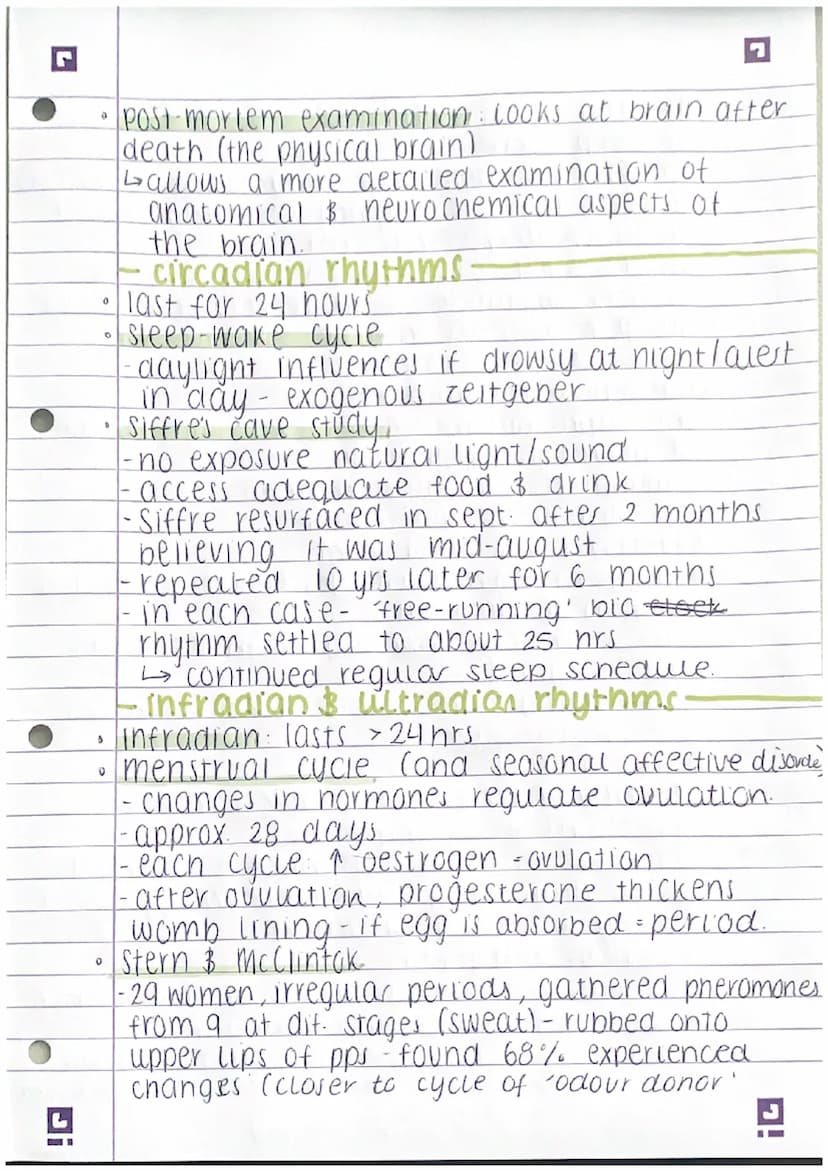 • post-mortem examination: looks at brain after
death (the physical brain)
↳ allows a more detailed examination of
anatomical & neurochemical aspects of
the brain.
- circadian rhythms
• last for 24 hours
• sleep-wake cycle
- daylight influences if drowsy at night/alert
in day - exogenous zeitgeber
• Siffre's cave study
- no exposure natural light/sound
- access adequate food & drink
- Siffre resurfaced in sept. after 2 months
believing it was mid-august
- repeated 10 yrs later for 6 months
- in each case - 'free-running' bio clock
rhythm settled to about 25 hrs
↳ continued regular sleep schedule.
- infradian & ultradian rhythms
• infradian: lasts > 24 hrs
• menstrual cycle (and seasonal affective disorder)
- changes in hormones regulate ovulation.
- approx. 28 days
- each cycle: ↑ oestrogen = ovulation
- after ovulation, progesterone thickens
womb lining - if egg is absorbed = period.
• Stern & McClintok
- 29 women, irregular periods, gathered pheromones
from 9 at dif. stages (sweat) - rubbed onto
upper lips of pps - found 68% experienced
changes (closer to cycle of 'odour donor'